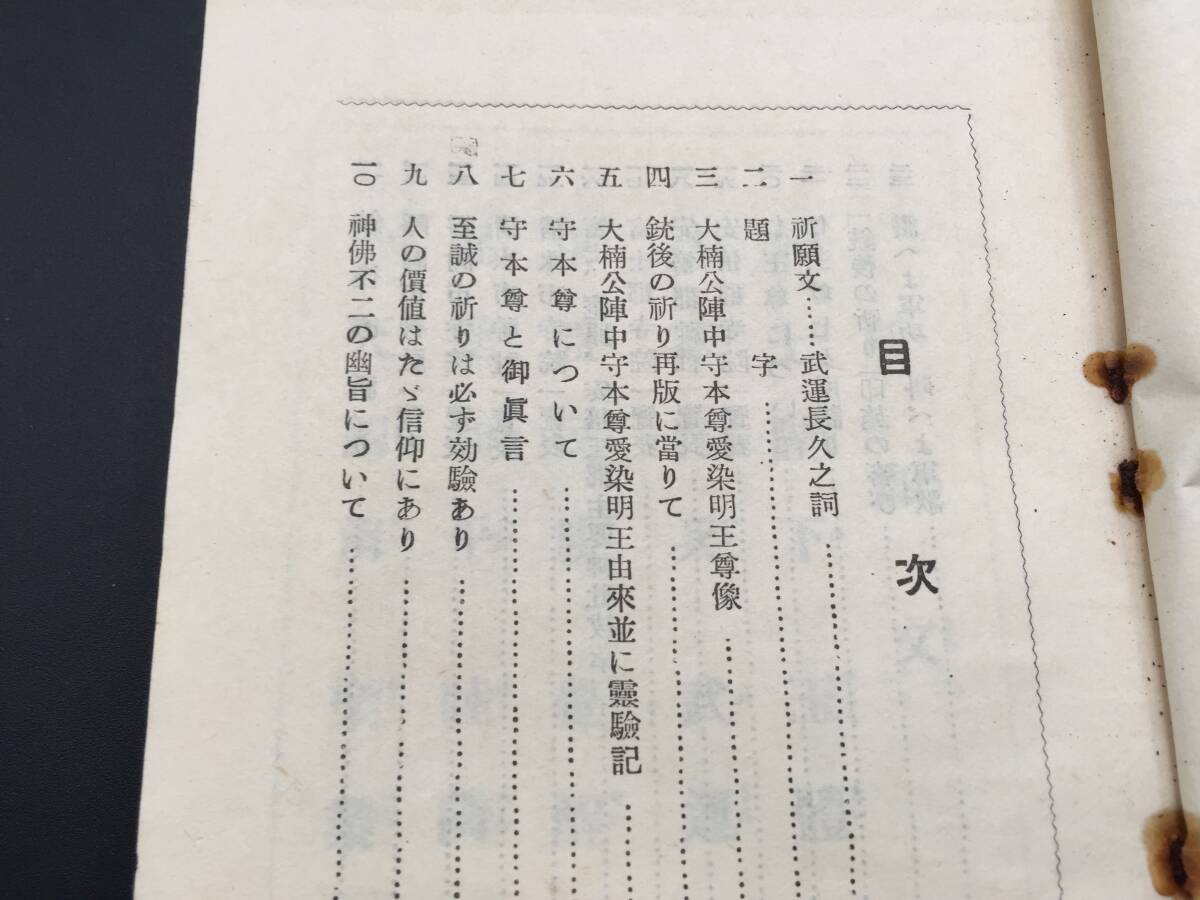 目次
一 祈願文……武運長久之詞…………
二 題字…………
三 大楠公陣中守本尊愛染明王尊像…………
四 銃後の祈り再版に當りて…………
五 大楠公陣中守本尊愛染明王由來並に靈驗記…………
六 守本尊について…………
七 守本尊と御眞言…………
八 至誠の祈りは必ず効驗あり…………
九 人の價値はたゞ信仰にあり…………
一〇 神佛不二の幽旨について…………